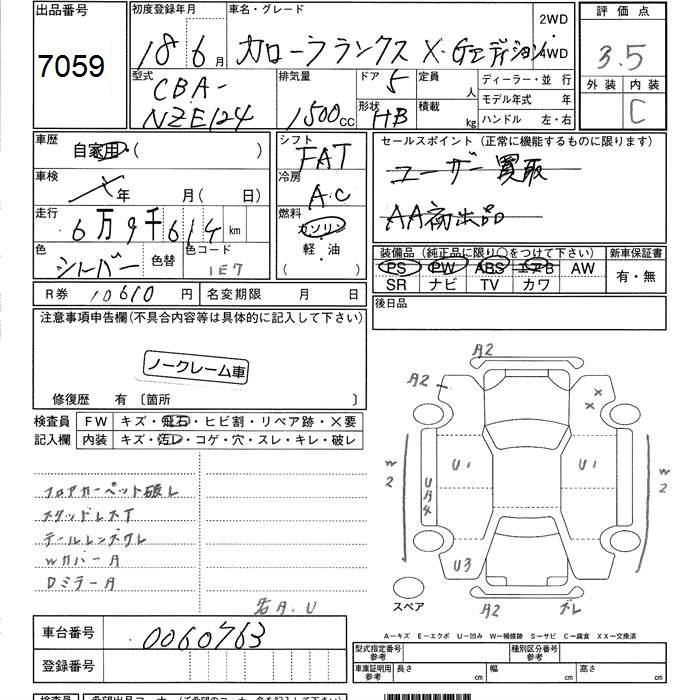 出品番号 初度登録年月 車名・グレード 評価点
7059 18 6月 カローラランクス X・Gエディション 2WD 4WD 3.5
型式 排気量 ドア 5 定員 人 ディーラー・並行 外装 内装
CBA-
NZE124 1500cc 形状 HB 積載 kg モデル年式 年 C
ハンドル 左・右
車歴 自家用・( ) シフト FAT セールスポイント (正常に機能するものに限ります)
車検 年 月(日) 冷房 AC ユーザー買取
走行 6万9千614km 燃料 ガソリン AA初出品
軽・油
( )
色 シルバー 色替 色コード 1E7 装備品 (純正品に限り○をつけて下さい) 新車保証書
PS PW ABS エアB AW 有・無
SR ナビ TV カワ
R券 10610円 名変期限 月 日 後日品
注意事項申告欄(不具合内容等は具体的に記入して下さい)
ノークレーム車
修復歴 有 〔箇所 〕
検査員 FW キズ・飛石・ヒビ割・リペア跡・X要
記入欄 内装 キズ・汚レ・コゲ・穴・スレ・キレ・破レ
フロアカーペット破レ
スタッドレスT
テールレンズワレ
Wカバー A
Dミラー A
若A.U
A2
A2
X
X
W2
U1
U1
W2
UA4
U3
スペア
A2
ズレ
A—キズ E—エクボ U—凹み W—補修跡 S—サビ C—腐食 XX—交換済
車台番号 0060763
登録番号
型式指定番号 参考 種別区分番号 参考
車庫証明用 参考 長さ cm 幅 cm 高さ cm
検査員 希望出品コーナー(ご希望のコーナー名を記入して下さい)